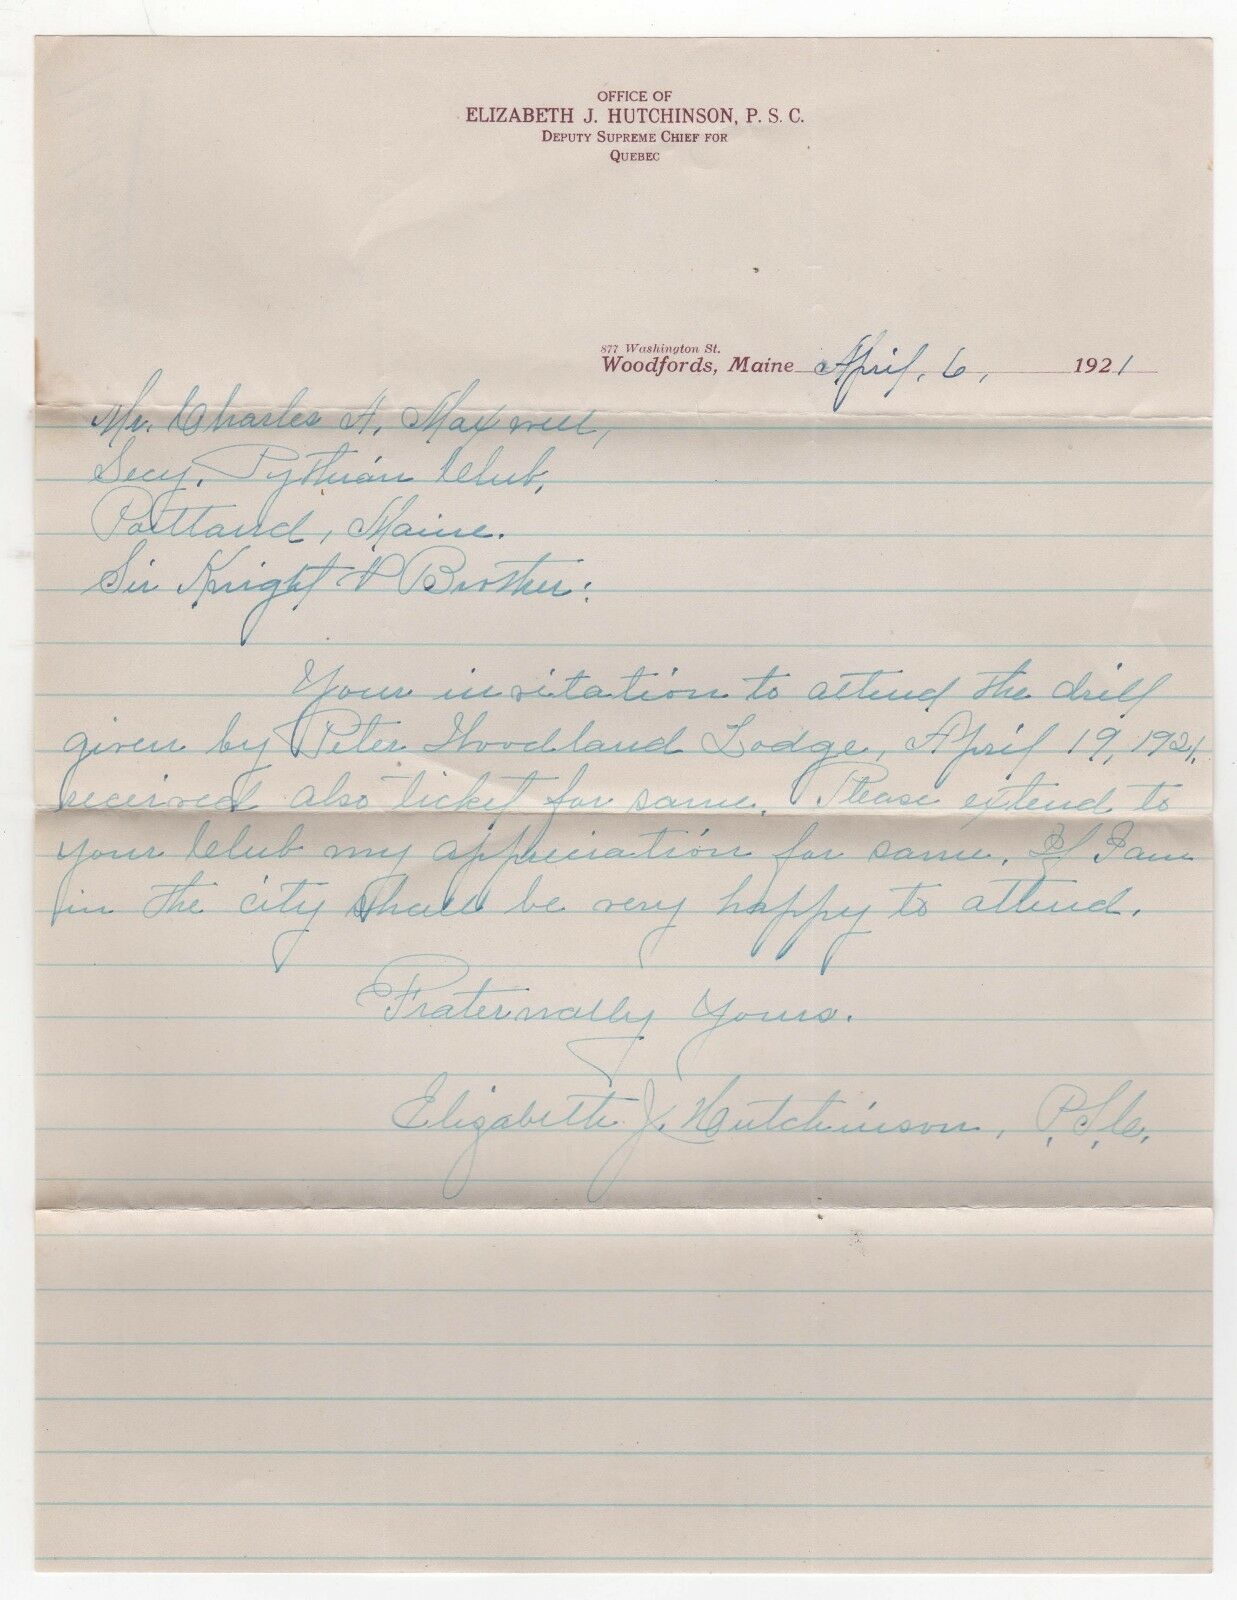 OFFICE OF
ELIZABETH J. HUTCHINSON, P. S. C.
DEPUTY SUPREME CHIEF FOR
QUEBEC
877 Washington St.
Woodfords, Maine April, 6, 1921
Mr. Charles H. Maxwell,
Secy. Pythian Club,
Portland, Maine.
Sir Knight & Brother:
Your invitation to attend the drill
given by Peter Woodland Lodge, April 19, 1921,
received also ticket for same. Please extend to
your Club my appreciation for same. If I am
in the city shall be very happy to attend.
Fraternally Yours.
Elizabeth J. Hutchinson, P.S.C.